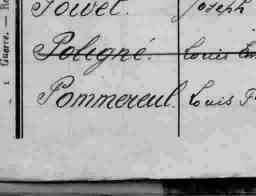 Joseph
Poligné. Louis
Pommereul. Louis F
Guerre. — Re